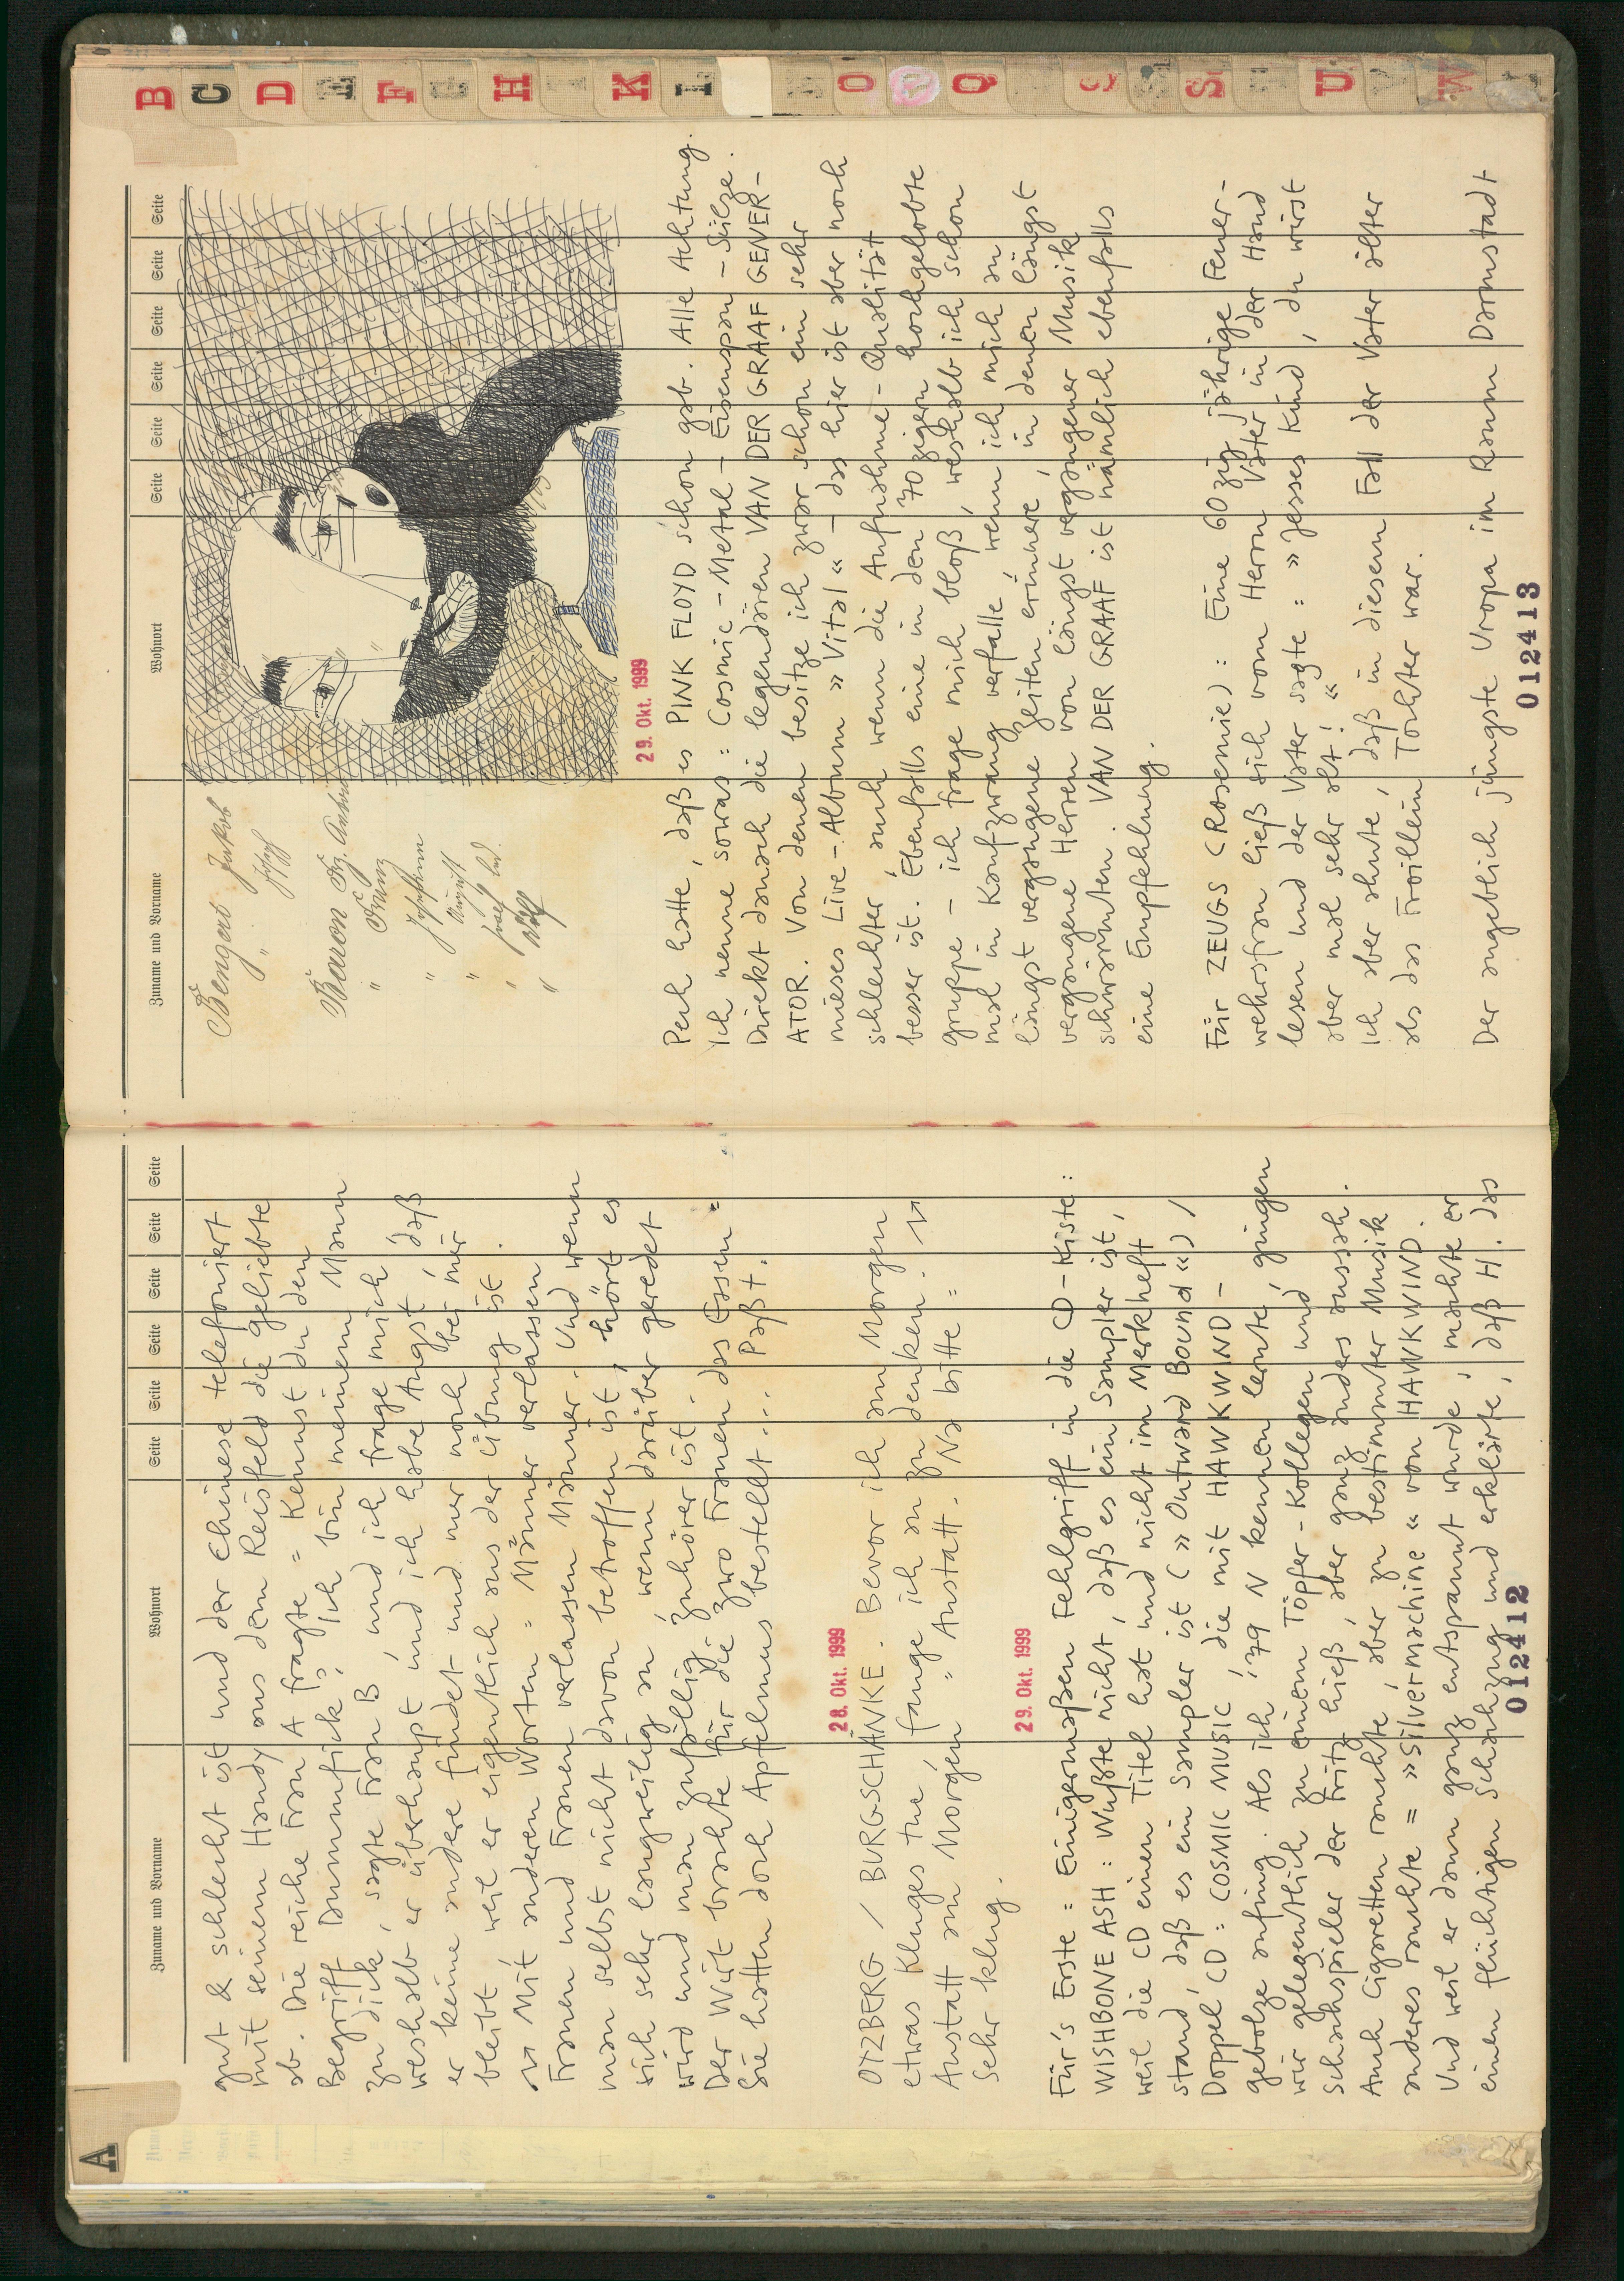 A
Zuname und Vorname Wohnort Seite Seite Seite Seite Seite Seite
gut & schlecht ist und der Chinese telefoniert
mit seinem Handy aus dem Reisfeld die geliebte
ab. Die reiche Frau A fragte = Kennst du den
Begriff Dammfick? Ich bin meinem Mann
zu dick, sagte Frau B, und ich frage mich,
weshalb er überhaupt und ich habe Angst, daß
er keine andere findet und nur noch bei mir
bleibt, weil er eigentlich aus der Übung ist.
Mit anderen Worten = Männer verlassen
Frauen und Frauen verlassen Männer. Und wenn
man selbst nicht davon betroffen ist, hört es
sich sehr langweilig an, wenn darüber geredet
wird und man zufällig Zuhörer ist.
Der Wirt brachte für die zwo Frauen das Essen =
Sie hatten doch Apfelmus bestellt ... Paßt.
28. Okt. 1999
OTZBERG / BURGSCHÄNKE. Bevor ich am Morgen
etwas Kluges tue, fange ich an zu denken.
Anstatt am Morgen = Anstatt. Na bitte =
Sehr klug.
29. Okt. 1999
Für's Erste = Einigermaßen Fehlgriff in die CD-Kiste:
WISHBONE ASH: Wußte nicht, daß es ein Sampler ist,
weil die CD einen Titel hat und nicht im Merkheft
stand, daß es ein Sampler ist (»Outward Bound«) /
Doppel CD: COSMIC MUSIC, die mit HAWKWIND-
gebolze anfing. Als ich '79 N kennen lernte, gingen
wir gelegentlich zu einem Töpfer-Kollegen und
Schachspieler der Fritz hieß, aber ganz anders aussah.
Auch Cigaretten rauchte, aber zu bestimmter Musik
anderes rauchte = »Silvermachine« von HAWKWIND.
Und weil er dann ganz entspannt wurde, machte er
einen flüchtigen Schachzug und erklärte, daß H. das
012412
Zuname und Vorname Wohnort Seite Seite Seite Seite Seite Seite
Bengart Jakob
" Josef
Baron Fz. Anton
" Franz
" Johann
" August
"
"
29. Okt. 1999
Pech hatte, daß es PINK FLOYD schon gab. Alle Achtung.
Ich nenne sowas: Cosmic-Metal-Eisenspan-Sülze.
Direkt danach die legendären VAN DER GRAAF GENER-
ATOR. Von denen besitze ich zwar schon ein sehr
mieses Live-Album »Vital« - das hier ist aber noch
schlechter, auch wenn die Aufnahme-Qualität
besser ist. Ebenfalls eine in den 70zigern hochgelobte
gruppe - ich frage mich bloß, weshalb ich schon
mal in Kaufzwang verfalle, wenn ich mich an
längst vergangene Zeiten erinnere, in denen längst
vergangene Herren von längst vergangener Musik
schwärmten. VAN DER GRAAF ist nämlich ebenfalls
eine Empfehlung.
Für ZEUGS (Rosemie): Eine 60zig jährige Feuer-
wehrsfrau ließ sich vom Herrn Vater in der Hand
lesen und der Vater sagte: »Jesses Kind, du wirst
aber mal sehr alt!«
Ich aber ahnte, daß in diesem Fall der Vater älter
als das Froillein Tochter war.
Der angeblich jüngste Uropa im Raum Darmstadt
012413
B
C
D
E
F
G
H
K
L
O
Q
S
U
V
W